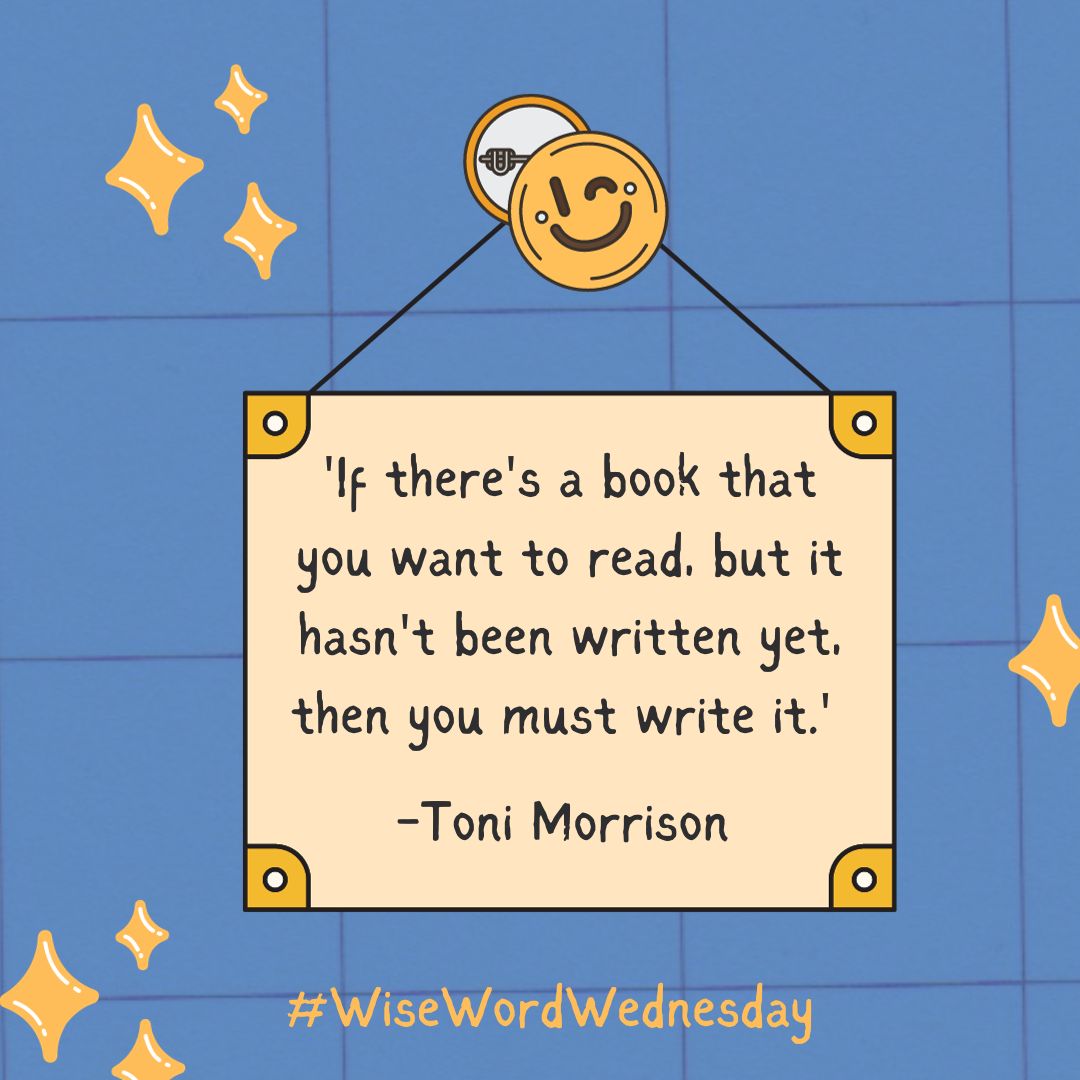 'If there's a book that
you want to read, but it
hasn't been written yet,
then you must write it.'
-Toni Morrison
#WiseWordWednesday